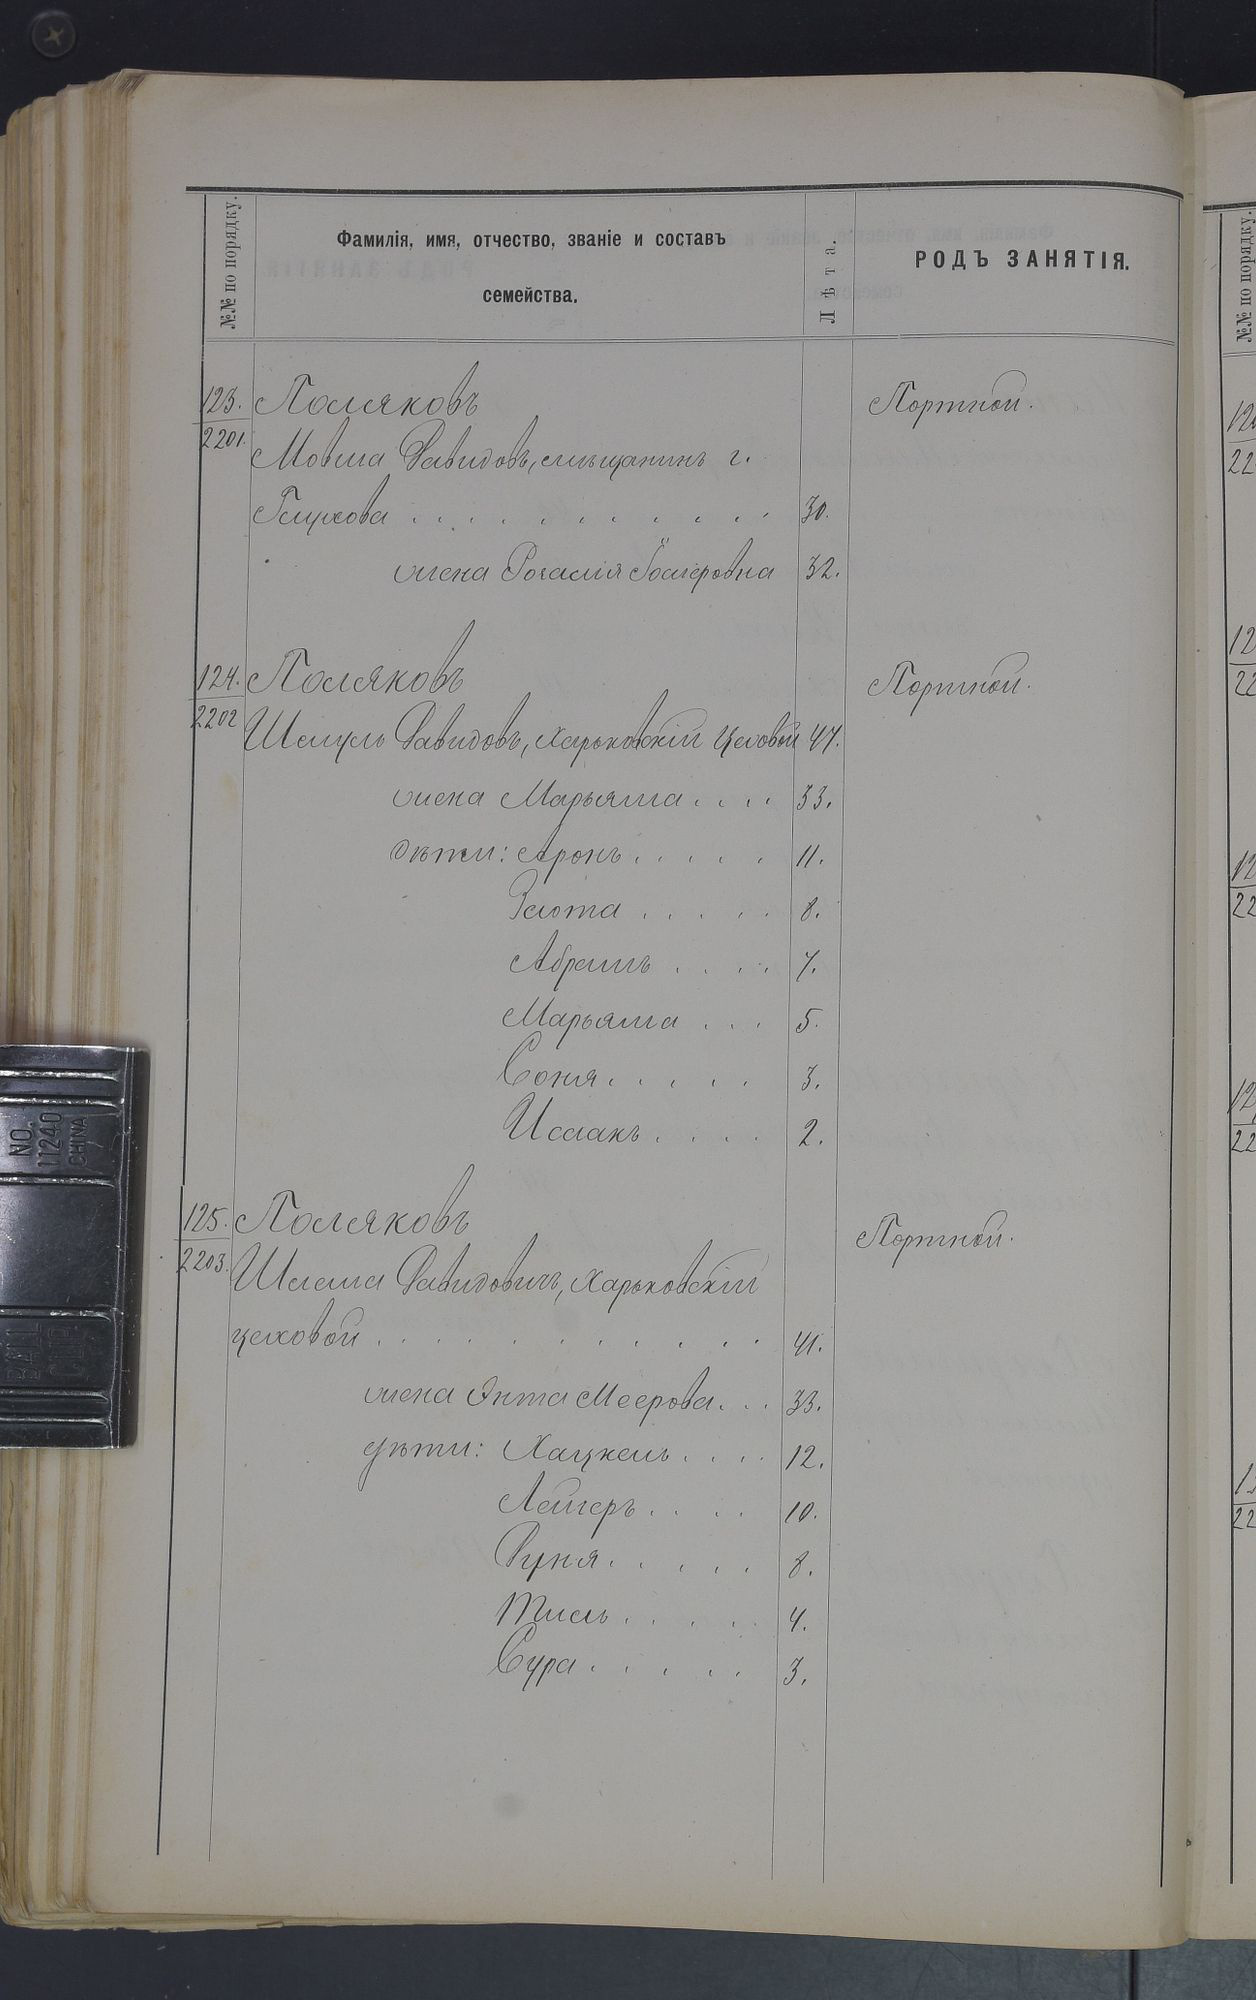 №№ по порядку.
Фамилія, имя, отчество, званіе и составъ
семейства.
Лѣта.
РОДЪ ЗАНЯТІЯ.
123. Поляковъ Портной.
2201. Мовша Давидовъ, мѣщанинъ г.
Глухова . . . . . . . . . . . 30.
жена Розалія 32.
124. Поляковъ Портной.
2202 Шмуль Давидовъ, Харьковскій Цеховой 47.
жена Марьяма . . . . 33.
дѣти: Аронъ . . . . . 11.
Злота . . . . . 8.
Абрамъ . . . . 7.
Марьяма . . . 5.
Соня . . . . . 3.
Исаакъ . . . . 2.
125. Поляковъ Портной.
2203. Шлема Давидовичъ, Харьковскій
цеховой . . . . . . . . . . 41.
жена Энта Меерова . . . 33.
дѣти: Хацкель . . . . 12.
Лейзеръ . . . . 10.
Руня . . . . . 8.
4.
Сура . . . . . 3.
№№ по порядку.
NO.
11240
CHINA
BALL
CLIP